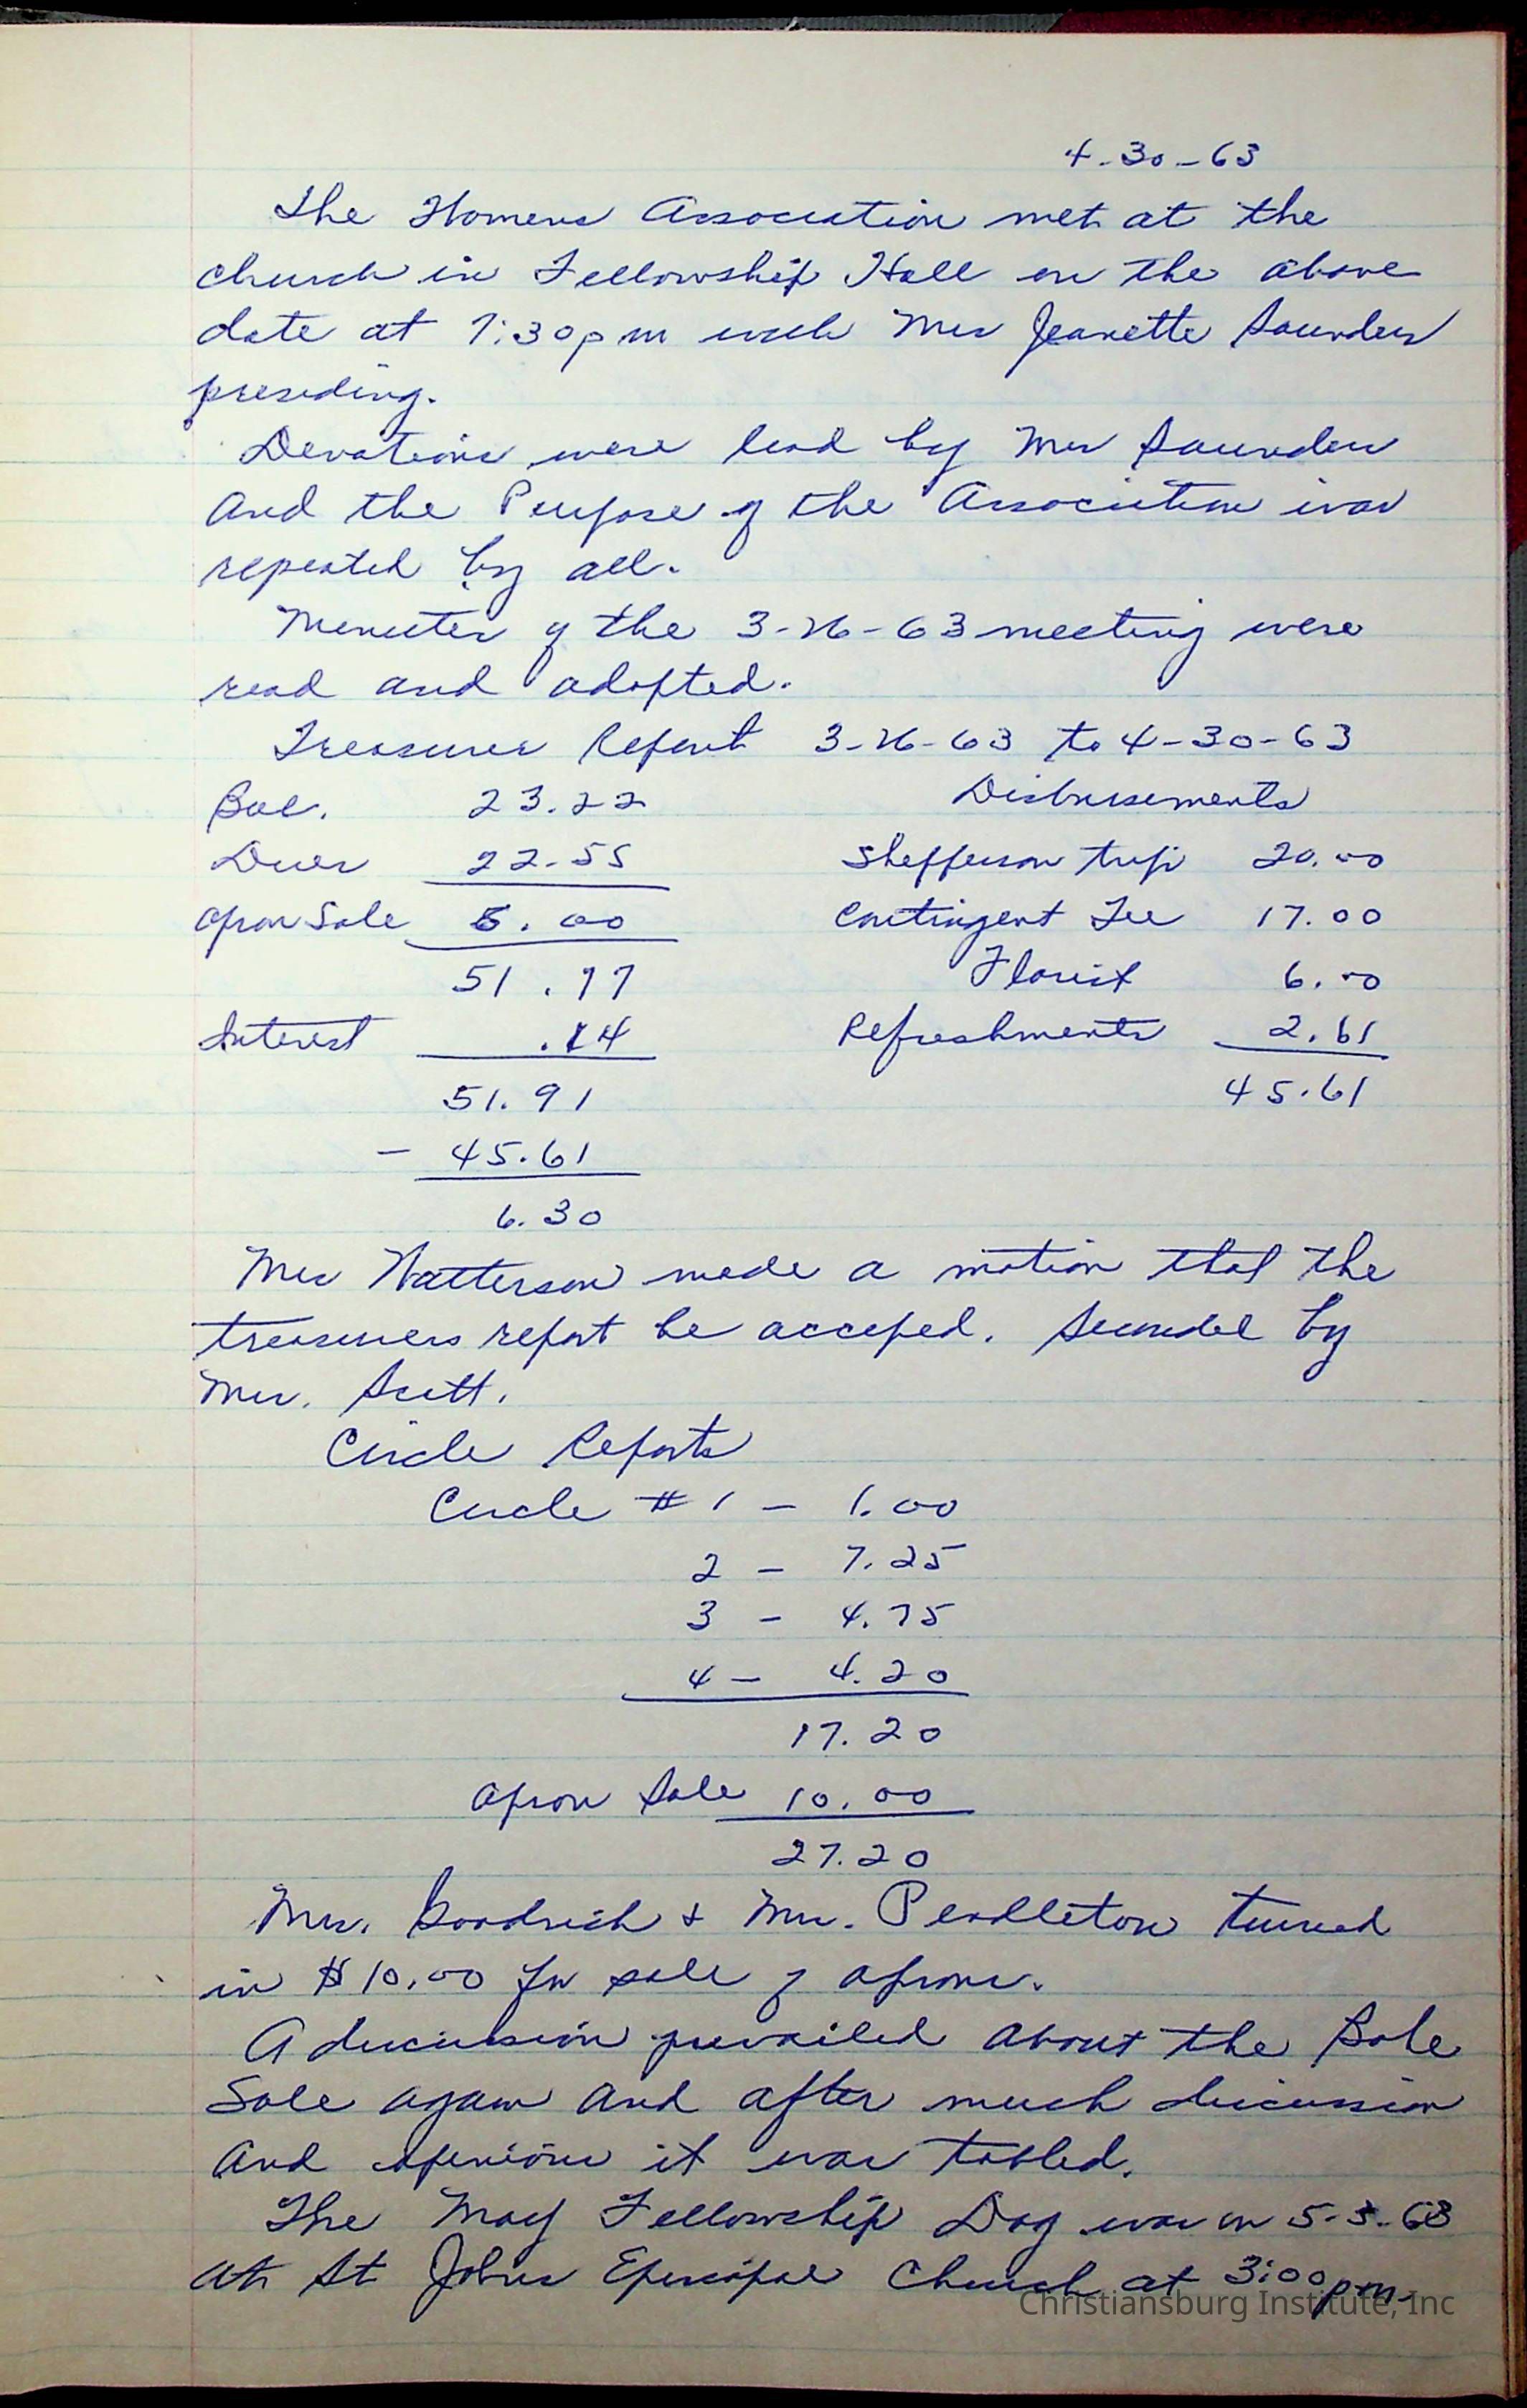 4-30-63
The Womens Association met at the
church in Fellowship Hall on the above
date at 7:30 pm with Mrs Jeanette Saunders
presiding.
Devotions were lead by Mrs Saunders
and the Purpose of the Association was
repeated by all.
Minutes of the 3-26-63 meeting were
read and adopted.
Treasurer Report 3-26-63 to 4-30-63
Bal. 23.22 Disbursements
Dues 22.55 trip 20.00
Apron Sale 6.00 Contingent Fee 17.00
51.77 Florist 6.00
Interest .14 Refreshments 2.61
51.91 45.61
- 45.61
6.30
Mrs Watterson made a motion that the
treasurers report be acceped. Seconded by
Mrs. Scott.
Circle Reports
Circle # 1 - 1.00
2 - 7.25
3 - 4.75
4 - 4.20
17.20
Apron Sale 10.00
27.20
Mrs. Goodrich & Mrs. Pendleton turned
in $10.00 for sale of aprons.
A discussion prevailed about the Bake
Sale again and after much discussion
and opinions it was tabled.
The May Fellowship Day was on 5-3-63
at St Johns Episcopal Church at 3:00 pm.
Christiansburg Institute, Inc